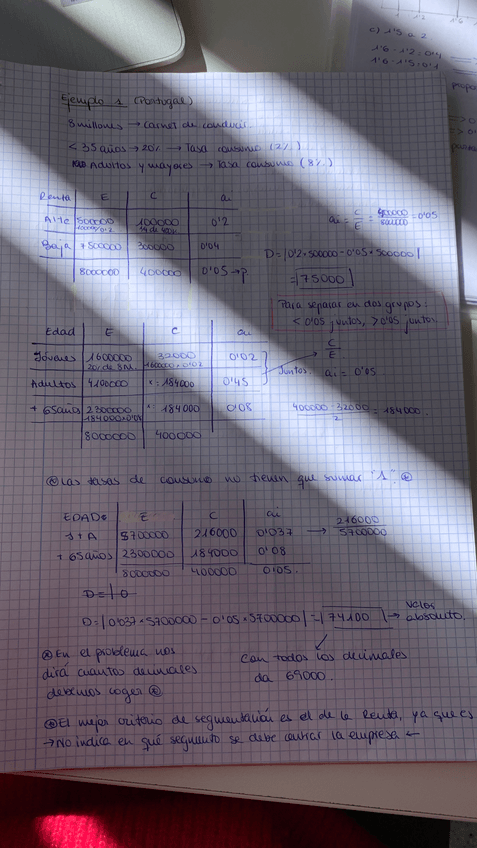 Ejemplo 1 (Portugal)
8 millones → carnet de conducir.
< 35 años → 20% → Tasa consumo (2%)
Adultos y mayores → Tasa consumo (8%)
Renta E C ai
Alta 500000 100000 0'2
Baja 7500000 300000 0'04
8000000 400000 0'05 → p
ai = C/E = 400000/8000000 = 0'05
D = |0'2 · 500000 - 0'05 · 500000|
= |75000|
Para separar en dos grupos:
< 0'05 juntos, > 0'05 juntos.
Edad E C ai
Jóvenes 1600000 32000 0'02
20% de 8M. 1600000 · 0'02
Adultos 4100000 184000 0'45
+ 65años 2300000 184000 0'08
8000000 400000
Juntos.
C/E
ai = 0'05
400000 - 32000 / 2 = 184000
Las tasas de consumo no tienen que sumar "1".
EDAD E C ai
J + A 5700000 216000 0'037 → 216000/5700000
+ 65años 2300000 184000 0'08
8000000 400000 0'05.
D = |0
D = |0'037 · 5700000 - 0'05 · 5700000| = |74100| → Valor absoluto.
En el problema nos
dirá cuantos decimales
debemos coger
Con todos los decimales
da 69000.
El mejor criterio de segmentación es el de la Renta, ya que es
→ No indica en qué segmento se debe centrar la empresa ←
c) 1'5 a 2
1'6 - 1'2 = 0'4
1'6 - 1'5 = 0'1